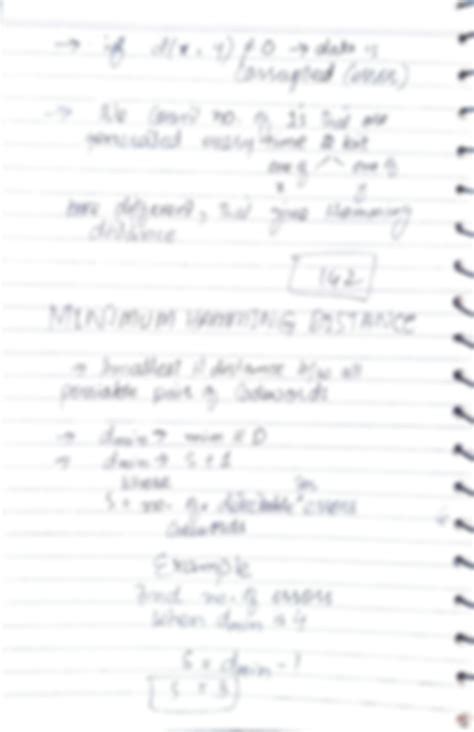 → if d(x, y) ≠ 0 → data is
(error)
→ We count no. of 1s that are
generated every time
one of one of
x y
are different, that give Hamming
distance
MINIMUM HAMMING DISTANCE
→ Smallest H distance b/w all
possible pair of Codewords
→ dmin → min H D
→ dmin → S + 1
where
S = no. of detectable errors in
Codewords
Example
Find no. of errors
when dmin = 4
S = dmin - 1
S = 3